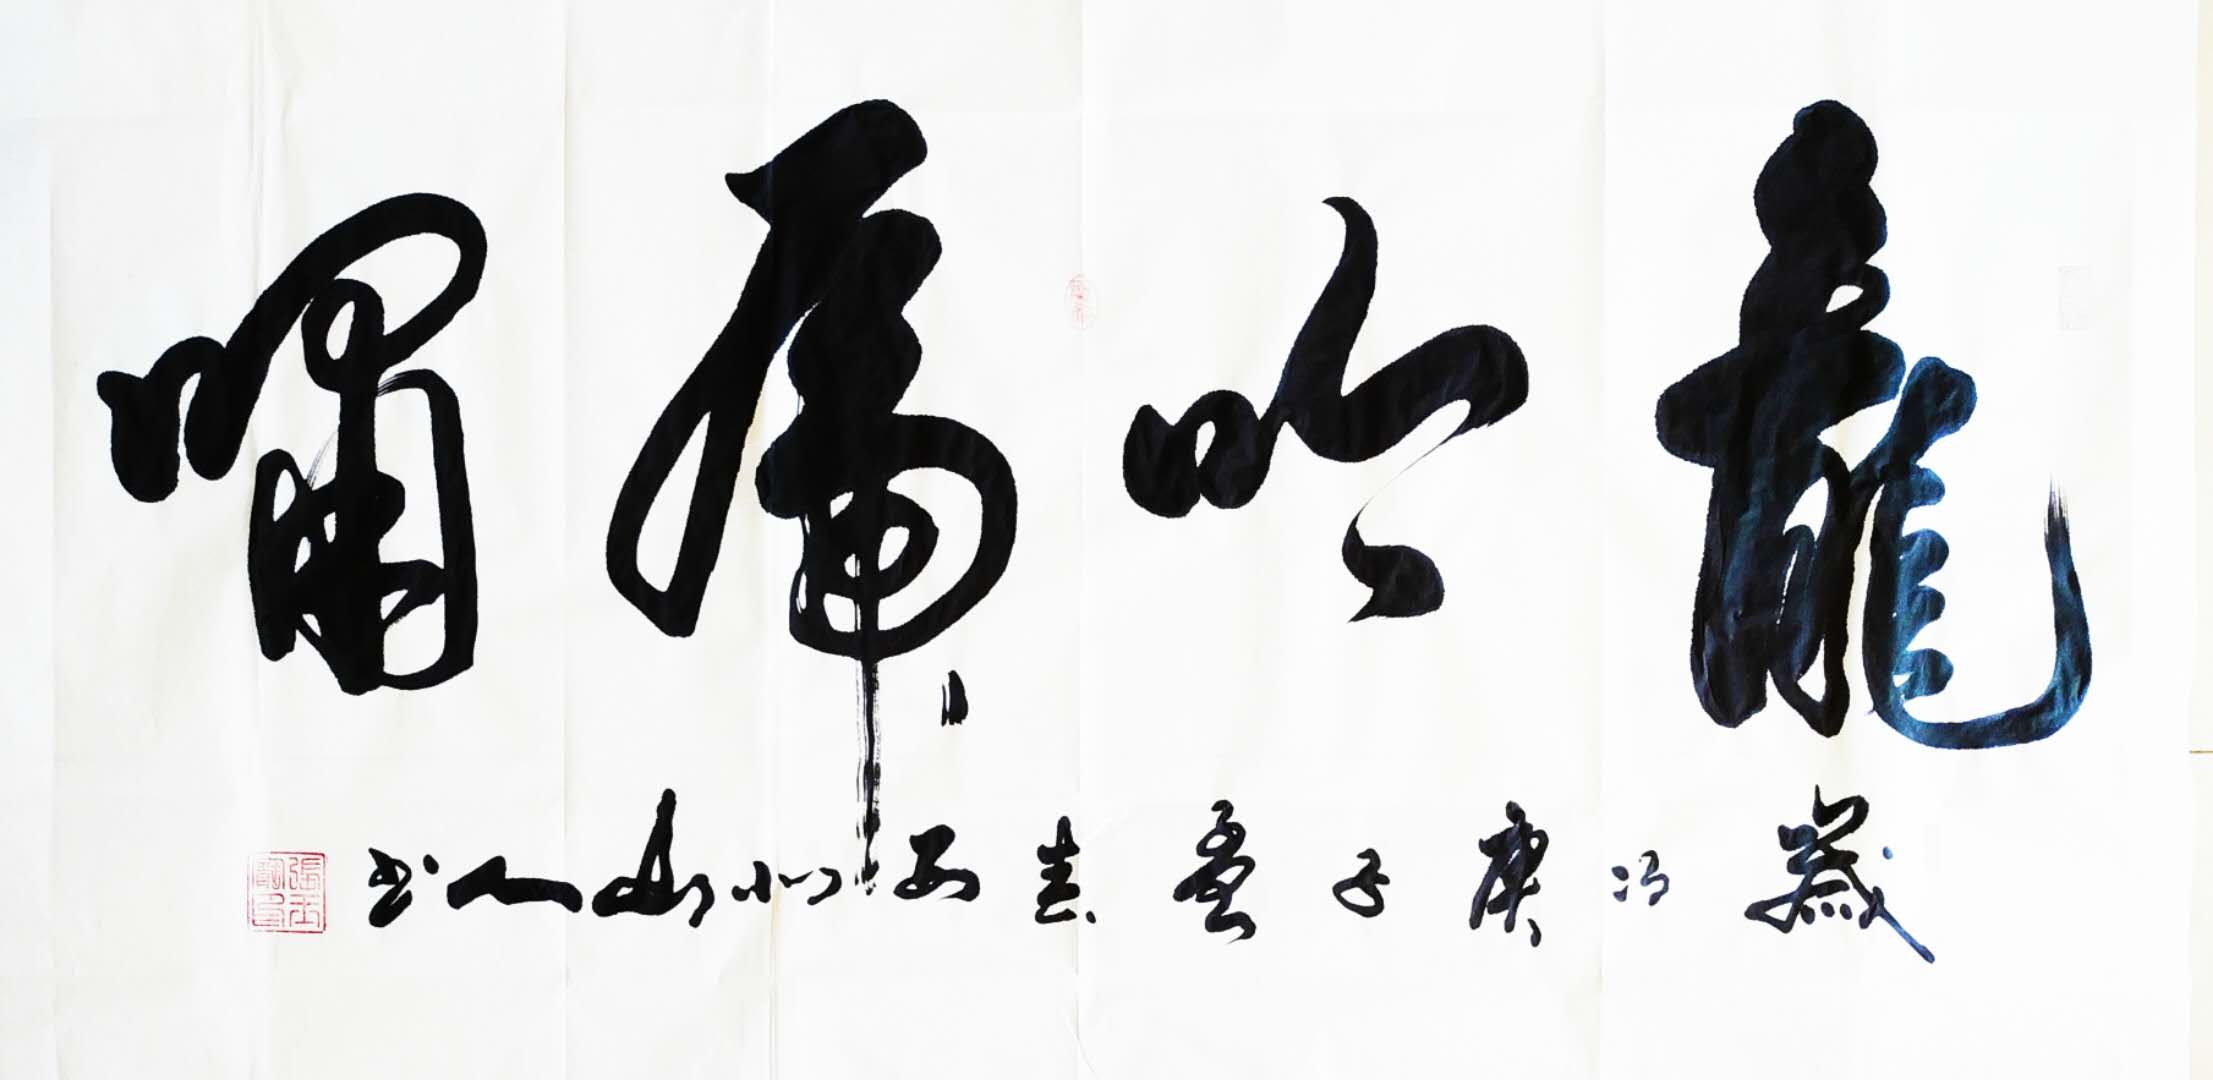 龍吟虎嘯
歲次庚子孟春西北山人書